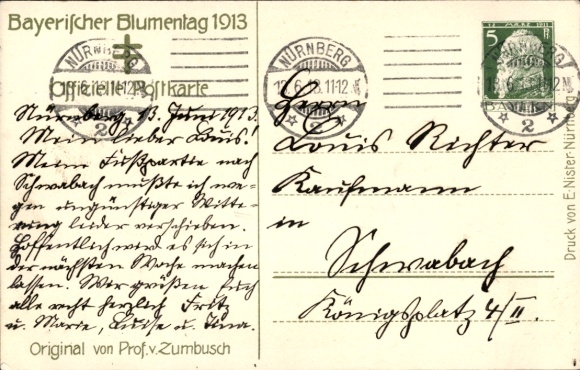 Bayerischer Blumentag 1913
Offizielle Postkarte
Nürnberg 13. Juni 1913.
Mein lieber Louis!
Meine Fußpartie nach
Schwabach mußte ich we-
gen ungünstiger Witte-
rung leider verschieben.
Hoffentlich wird es sich in
der nächsten Woche machen
lassen. Wir grüßen Euch
alle recht herzlich Fritz
u. Marie, Luise u. Tina.
Original von Prof. v. Zumbusch
NÜRNBERG
13.6.13.11-12.V.
2
NÜRNBERG
2
NÜRNBERG
2
5
BAYERN
Herrn
Louis Richter
Kaufmann
in
Schwabach
Königsplatz 4/II.
Druck von E. Nister-Nürnberg